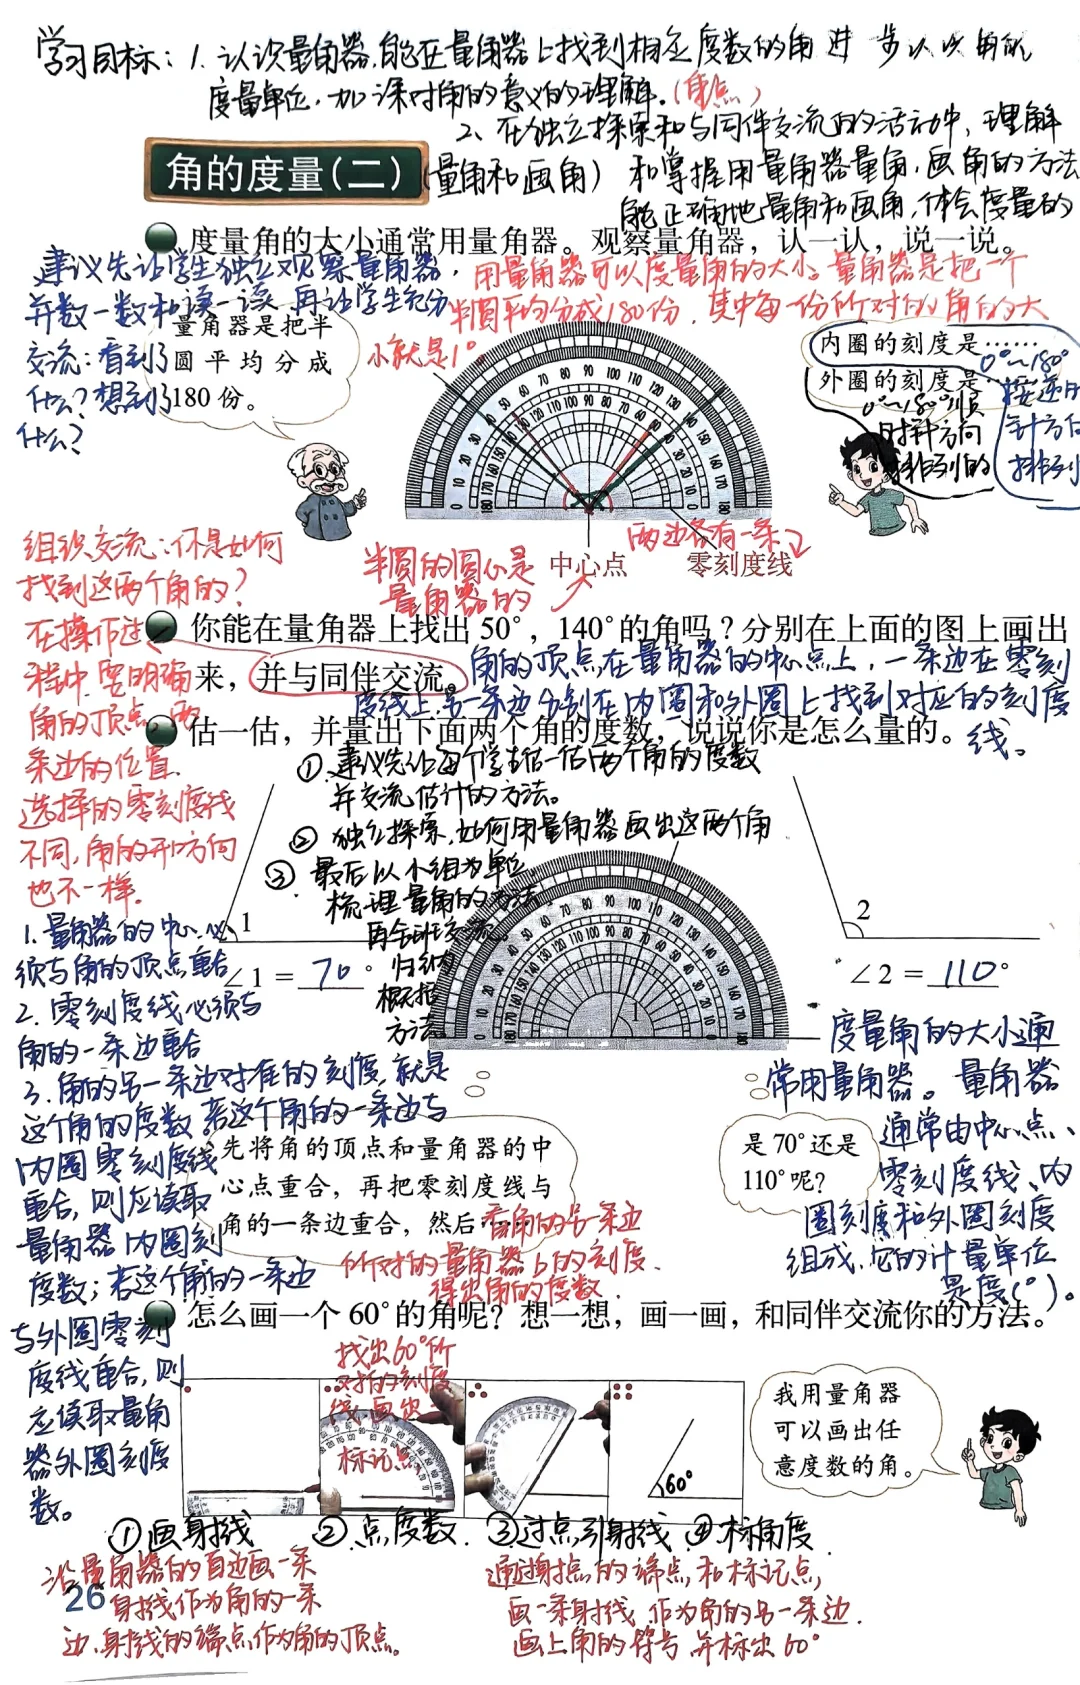 学习目标：1.认识量角器,能在量角器上找到相应度数的角 进 步认识角的
度量单位,加深对角的意义的理解.(重点)
2、在独立探索和与同伴交流的活动中,理解
角的度量(二)
(量角和画角)
和掌握用量角器量角、画角的方法
能正确地量角和画角,体会度量的
度量角的大小通常用量角器。观察量角器，认一认，说一说。
建议先让学生独立观察量角器,
并数一数和读一读 再让学生充分
交流：看到了
什么?想到了
什么?
用量角器可以度量角的大小。量角器是把一个
半圆平均分成180份,其中每一份所对的角的大
小就是1°
量角器是把半
圆平均分成
180份。
内圈的刻度是……
0°~180°
按逆时
针方向
排列
外圈的刻度是
0°~180°顺
时针方向
排列的
半圆的圆心是
量角器的
中心点
两边各有一条
零刻度线
组织交流：你是如何
找到这两个角的?
在操作过
程中 要明确
角的顶点 两
条边的位置.
选择的零刻度线
不同,角的开口方向
也不一样.
你能在量角器上找出50°，140°的角吗？分别在上面的图上画出
来，并与同伴交流。
角的顶点在量角器的中心点上,一条边在零刻
度线上,另一条边分别在内圈和外圈上找到对应的刻度
线。
估一估，并量出下面两个角的度数，说说你是怎么量的。
①.建议先让每个学生估一估两个角的度数
并交流估计的方法。
②独立探索,如何用量角器画出这两个角
③最后以小组为单位
梳理量角的方法
再全班交流
归纳
概括
方法
1
∠1=70°
2
∠2=110°
1
1.量角器的中心必
须与角的顶点重合
2.零刻度线必须与
角的一条边重合
3.角的另一条边对准的刻度,就是
这个角的度数 若这个角的一条边与
内圈零刻度线
重合,则应读取
量角器内圈刻
度数;若这个角的一条边
与外圈零刻
度线重合,则
应读取量角
器外圈刻度
数。
先将角的顶点和量角器的中
心点重合，再把零刻度线与
角的一条边重合，然后
看角的另一条边
所对的量角器上的刻度.
得出角的度数.
是70°还是
110°呢？
度量角的大小通
常用量角器。量角器
通常由中心点、
零刻度线、内
圈刻度和外圈刻度
组成,它的计量单位
是度(°)。
怎么画一个60°的角呢？想一想，画一画，和同伴交流你的方法。
找出60°所
对的刻度
线,画出一
标记点.
60°
我用量角器
可以画出任
意度数的角。
①画射线 ②点度数. ③过点引射线 ④标角度.
沿量角器的直边画一条
射线作为角的一条
边,射线的端点作为角的顶点。
通过射线的端点和标记点,
画一条射线,作为角的另一条边.
画上角的符号,并标出60°
26